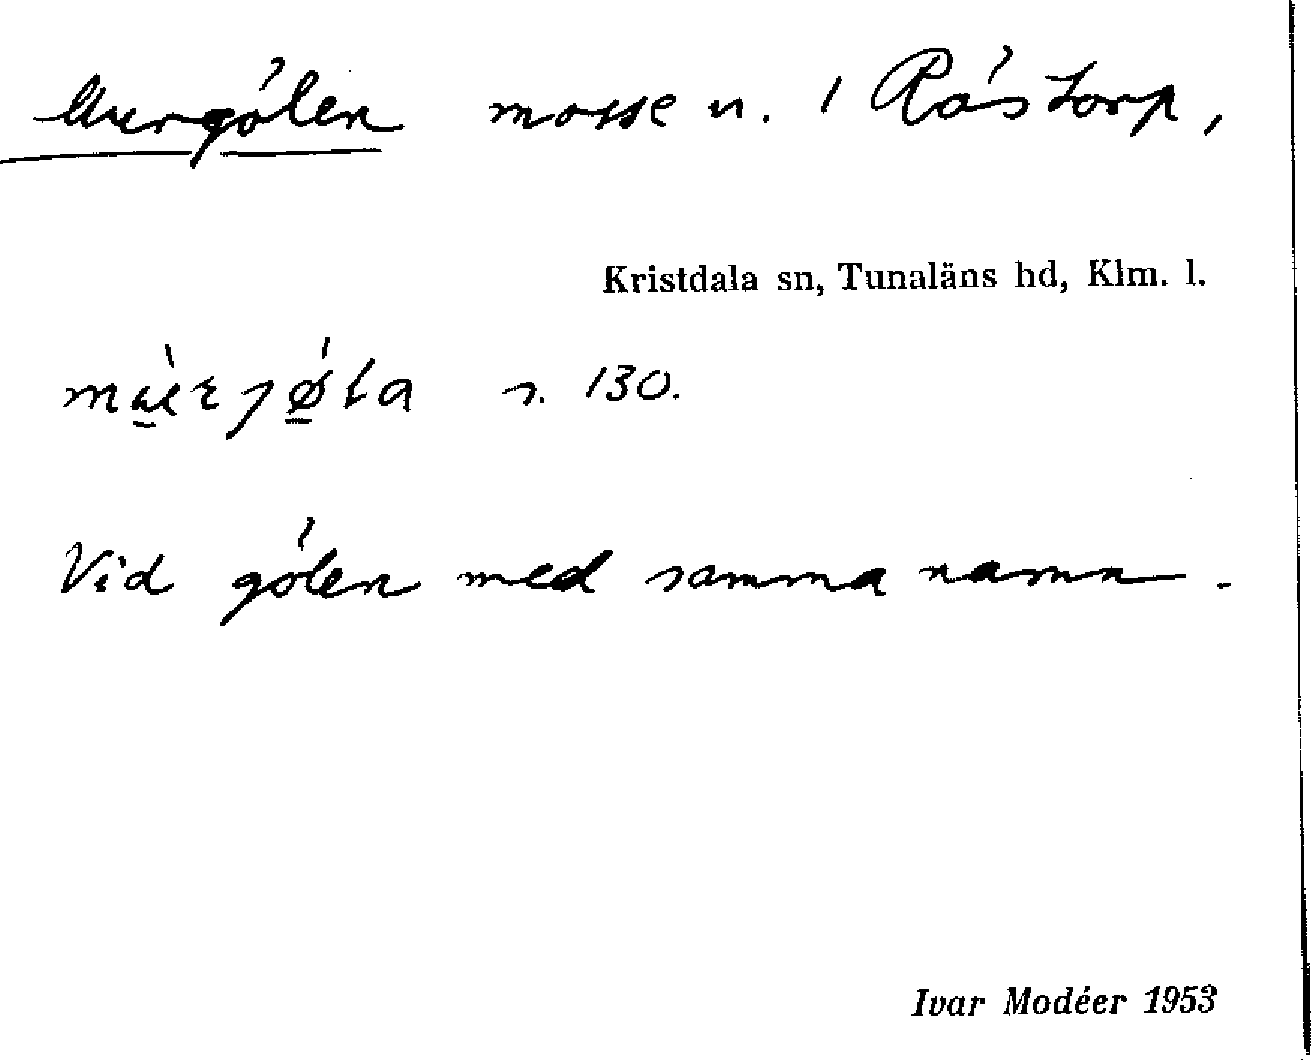 Murgölen mosse n. i Råstorp,
Kristdala sn, Tunaläns hd, Klm. l.
s. 130.
Vid gölen med samma namn.
Ivar Modéer 1953